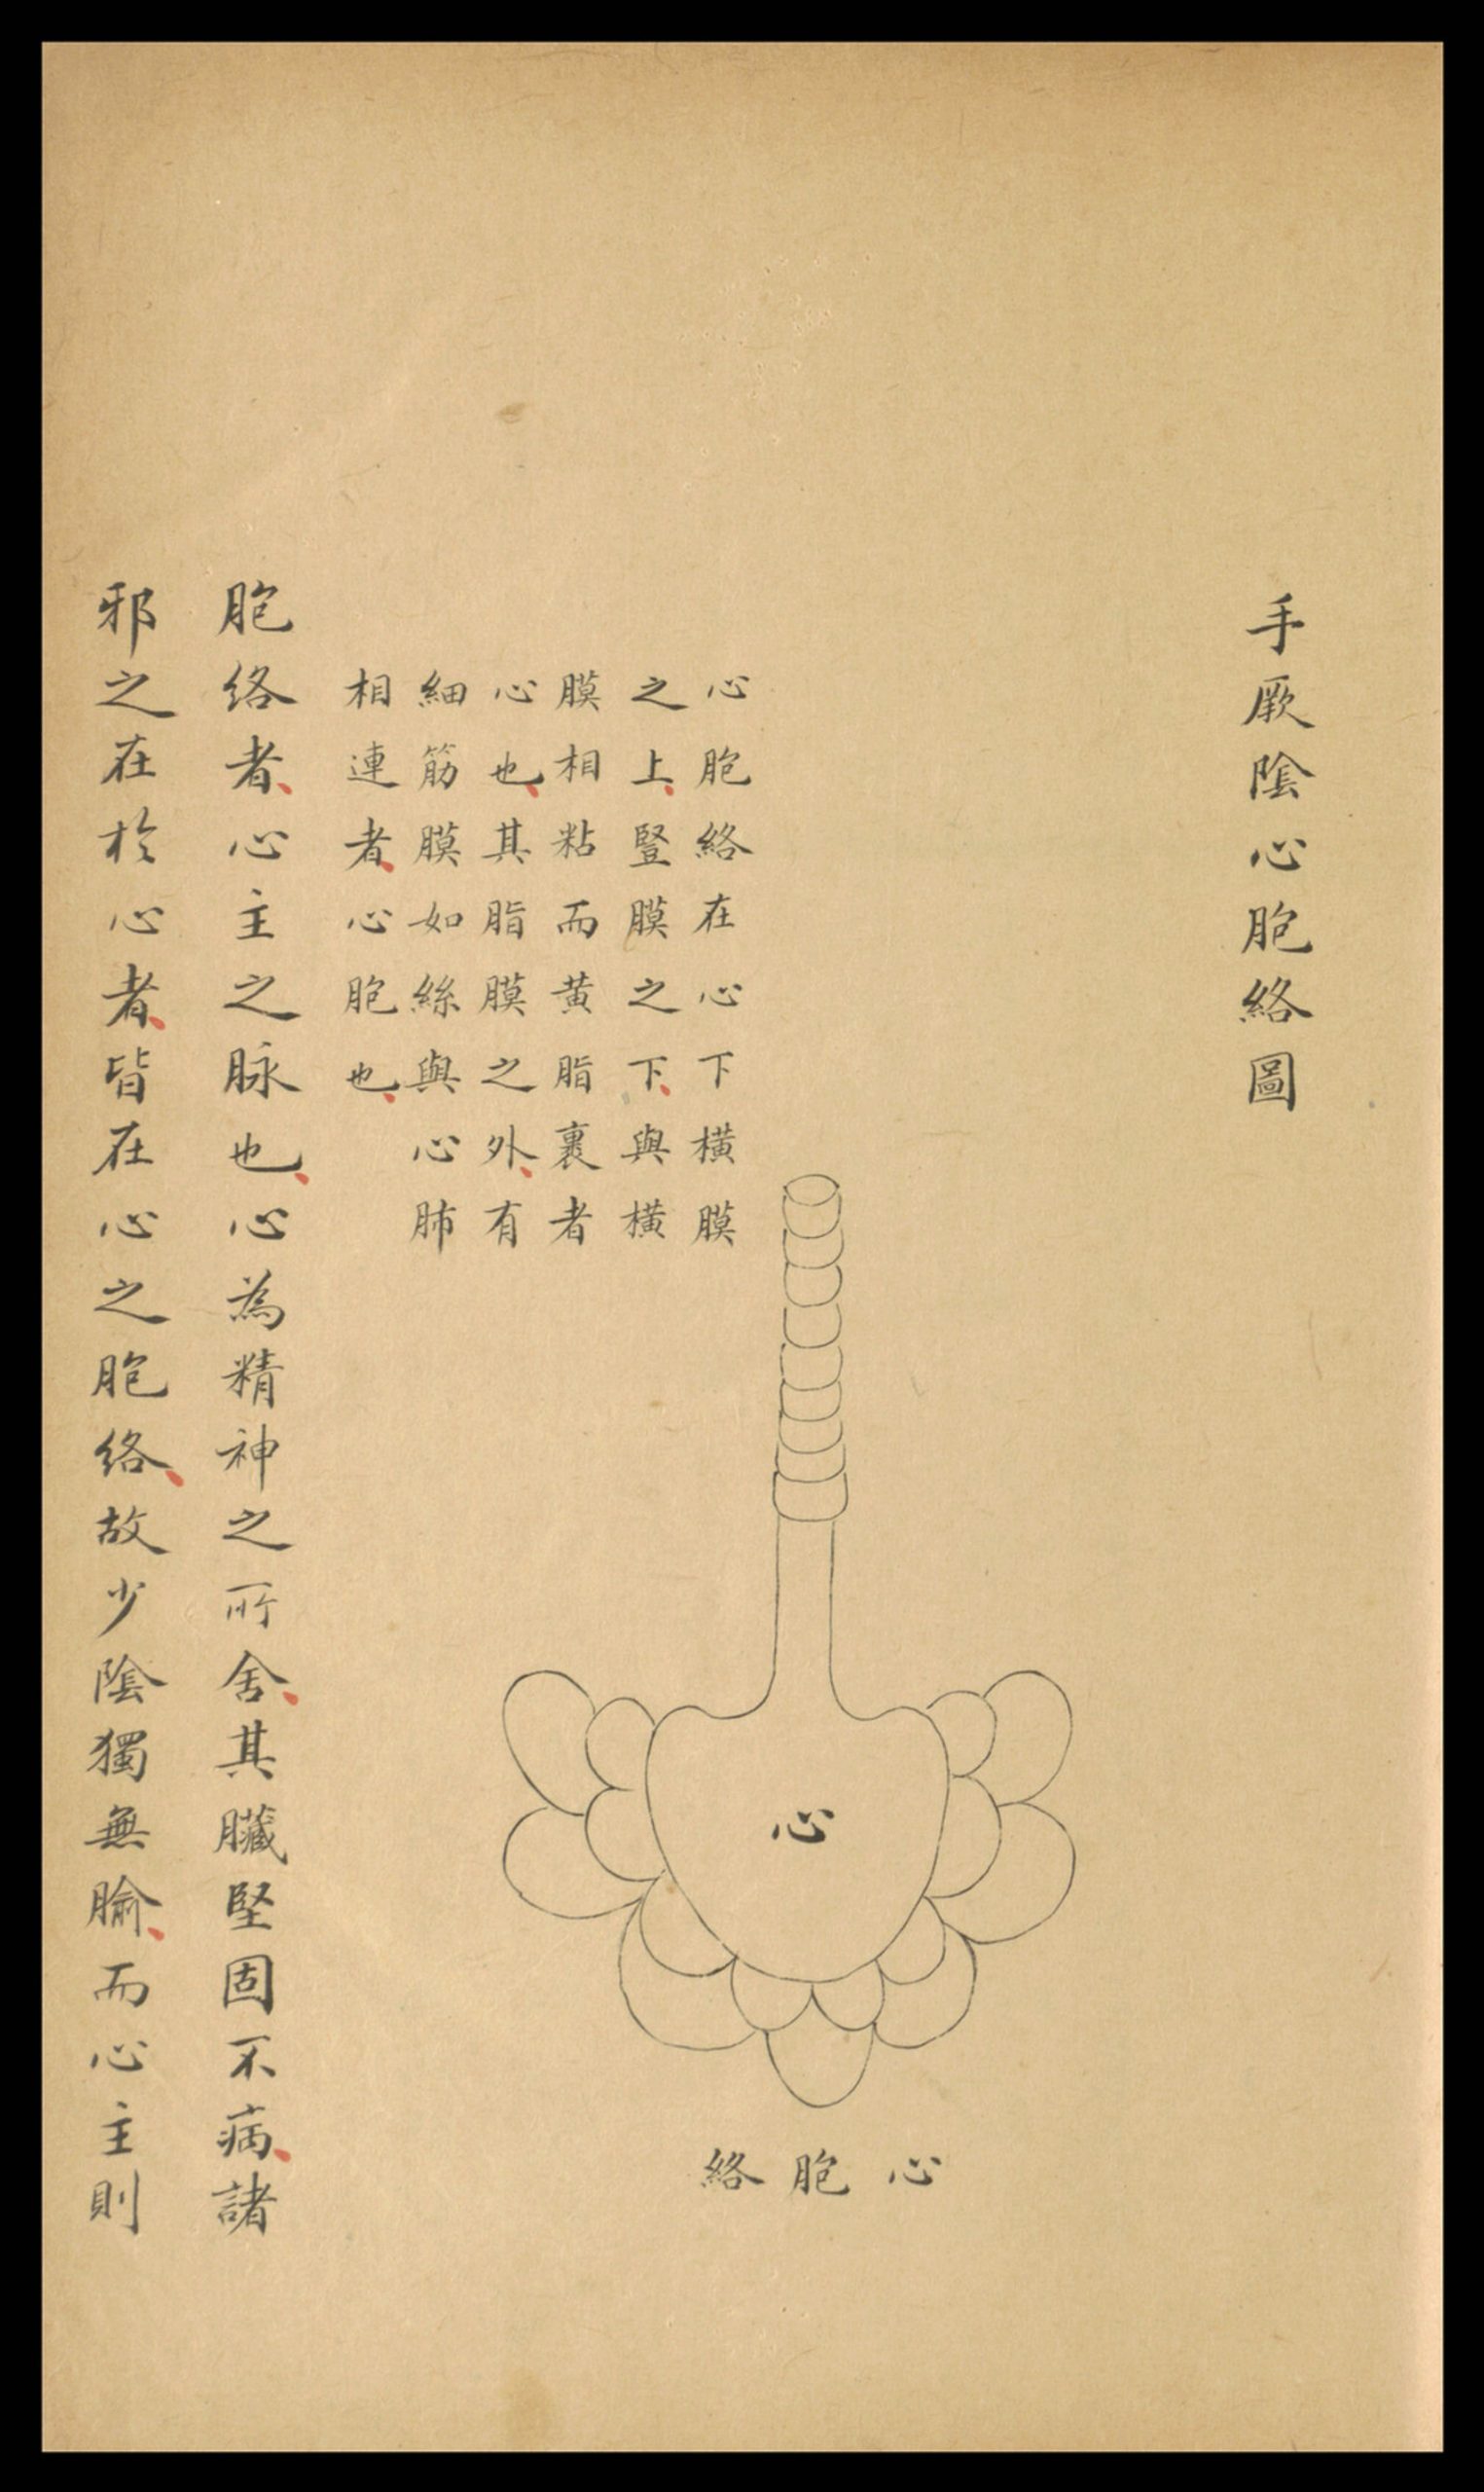 手厥陰心胞絡圖
心胞絡在心下橫膜
之上、豎膜之下、與橫
膜相粘而黃脂裹者
心也、其脂膜之外、有
細筋膜如絲與心肺
相連者、心胞也、
心
心胞絡
胞络者、心主之脉也、心為精神之所舍、其臟堅固不病、諸
邪之在於心者、皆在心之胞络、故少陰獨無腧、而心主則